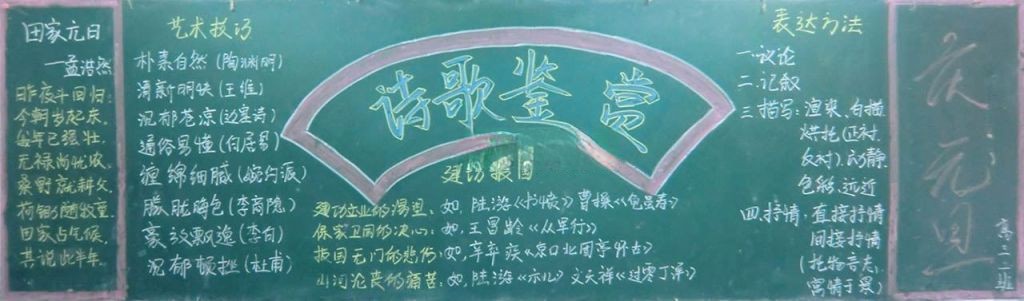 田家元日
——孟浩然
昨夜斗回北,
今朝岁起东。
我年已强壮,
无禄尚忧农。
桑野就耕父,
荷锄随牧童。
田家占气候,
共说此年丰。
艺术技巧
朴素自然(陶渊明)
清新明快(王维)
沉郁苍凉(边塞诗)
通俗易懂(白居易)
缠绵细腻(婉约派)
朦胧晦色(李商隐)
豪放飘逸(李白)
沉郁顿挫(杜甫)
诗歌鉴赏
建功报国
建功立业的渴望:如,陆游《书愤》曹操《龟虽寿》
保家卫国的决心:如,王昌龄《从军行》
报国无门的悲伤:如,辛弃疾《京口北固亭怀古》
山河沦丧的痛苦:如,陆游《示儿》文天祥《过零丁洋》
表达方法
一.议论
二.记叙
三.描写:渲染、白描
烘托(正衬、
反衬)、动静、
色彩、远近
四.抒情,直接抒情
间接抒情
(托物言志、
寓情于景)
庆元旦
高二二班